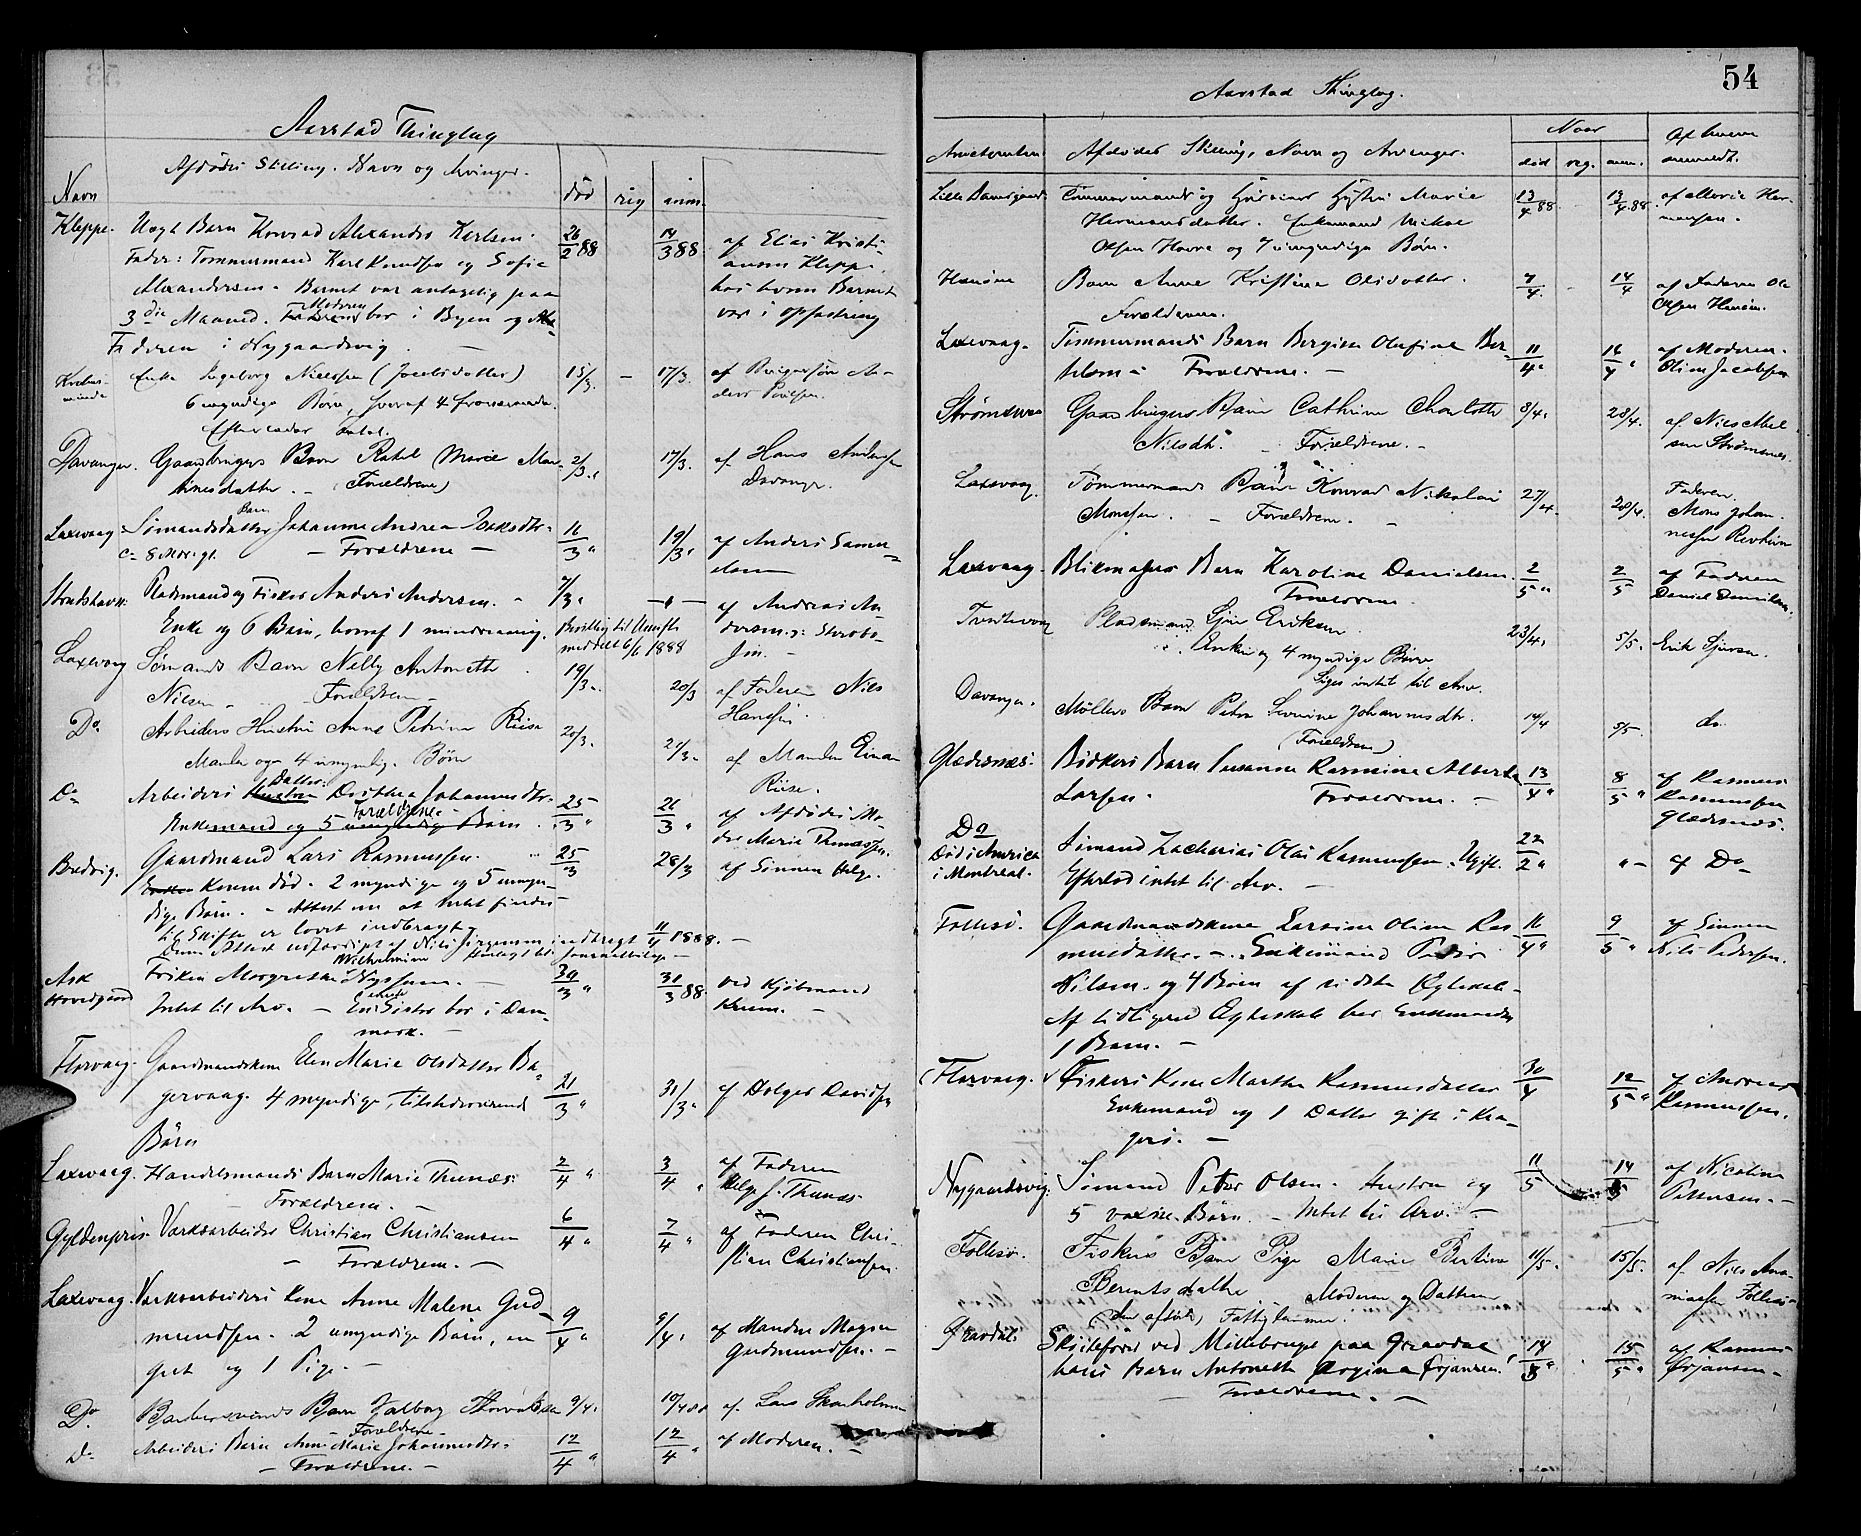 Aarstad Thinglag
Afdødes Stilling. Navn og Arvinger.
Navn død reg anm.
Kleppe. Uægt Barn Konrad Alexander Karlsen. 26/2 88 14/3 88 af Elias Kristi-
Fader: Tømmermand Karl Knudsen og Sofie ansen Kleppe,
Alexandersen. Barnet var antagelig paa hos hvem Barnet
3die Maaned. Moderen bor i Byen og var i opfostring
Faderen i Nygaardsvig. —
Enke Ingeborg Nielsen (Jacobsdatter) 15/3. — 17/3. af
6 myndige Børn, hvoraf 4 fraværende.
Efterlader intet.
Davanger. Gaardbrugers Barn Rakel Marie Mar- 2/3. 17/3. af Hans Andersen
tinesdatter. — (Forældrene) Davanger.
Laxevaag Sømandsdatter Barn Johanne Andrea Isaksdtr. 16/3 " 19/3. af Anders Samu-
c. 8 — Forældrene — elsen
Pladsmand og Fisker Anders Andersen. 7/3. — " — af Andreas An-
Enke og 6 Børn, hvoraf 1 mindreaarig. Bevilling til Uskifte
meddelt 6/6 1888
Laxevaag Sømands Barn Nelly Antonette 19/3. 20/3 af Faderen Nils
Nilsen. Forældrene — Hansen.
Do Arbeiders Hustru Anne Petrine Riise 20/3. 21/3. af Manden Einar
Manden og 4 umyndig. Børn Riise.
Do Arbeiders Hustru Datter Dorthea Johannesdtr. 25/3 " 26/3 " af Afdødes Mo-
Enkemand og 5 umyndige Børn. Forældrene — der Marie Thomassen.
Bredvig. Gaardmand Lars Rasmussen. 25/3 28/3 af Sønnen Helge.
Enken Konen død. 2 myndige og 5 umyn-
dige Børn. — Attest om at Intet findes
til Skifte er lovet indbragt.
Denne Attest udfærdiget af Nils Jørgensen indbragt 11/4 1888. —
Ask Frøken Margrethe Wilhelmine Nyssum. — 30/3 " 31/3 88. ved Kjøbmand
Hovedgaard Intet til Arv. — En Søster bor i Dan- Krum. —
mark. —
Florvaag. Gaardmandskone Elen Marie Olsdatter Ba- 21/3 " 31/3. af Holger Davidsen
gervaag. 4 myndige, tilstedeværende
Børn
Laxevaag. Handelsmands Barn Marie Thunæs. 2/4 " 3/4 " af Faderen
— Forældrene. — Helge J. Thunæs.
Gyldenpris. Værksarbeider Christian Christiansen 6/4 " 7/4 " af Faderen Chri-
— Forældrene. — stian Christiansen.
Laxevaag. Værksarbeiders Kone Anne Malene Gud- 9/4 " 9/4. af Manden Magne
mundsen. 2 umyndige Børn, en Gudmundsen. —
gut og 1 Pige. —
Do. Barn Valborg 9/4. 10/4 88 af Lars Skarholmen
— Forældrene —
Do Arbeiders Barn Anne Marie Johannesdtr. 12/4 " 12/4 " af Moderen. —
— Forældrene. —
54
Aarstad Thinglag.
Naar Af hvem
Afdødes Stilling, Navn og Arvinger. død reg. anm. anmeldt.
Lille Damsgaard. Tømmermands og Hustru Marie 13/4 88 — 13/4 88. af Marie Her-
Hermansdatter. Enkemand Mikal mansen.
Olsen og 7 umyndige Børn.
Barn Anne Kristine Olsdatter. 7/4. — 14/4 af Faderen Ole
Forældrene. Olsen
Laxevaag. Tømmermands Barn Bergine Olufine Ber- 11/4 " 16/4 " af Moderen
telsen — Forældrene. — Oline Jacobsen
Strømsnes Gaardbrugers Barn Cathrine Charlotte 8/4. 20/4. af Nils Abel-
Nilsdtr. — Forældrene. — sen Strømsnes.
Laxevaag Tømmermands Barn Konrad Nikolai 27/4. 28/4. Faderen
Monsen. — Forældrene. — Mons Johan-
nessen
Laxevaag. Blikmagers Barn Karoline Danielsen. 2/5 " 2/5 af Faderen
Forældrene. Daniel Danielsen.
Pladsmand Sjur Eriksen. 23/4. 5/5. Erik Sjursen.
Enke og 4 myndige Børn.
Siges intet til Arv.
Davanger. Møllers Barn Petra Severine Johannesdtr. 14/4 5/5. do.
(Forældrene)
Glædesnæs. Bødkers Barn Susanne Rasmine Alberta 13/4 " 8/5 " af Rasmus
Larsen. Forældrene. — Rasmussen
Glædesnæs.
Do
Død i America Sømand Zacharias Olai Rasmussen. Ugift. 22/2 " " — af Do
i Montreal. Efterlod intet til Arv. —
Follesø. Gaardmandskone Larsine Oline Ras- 16/4 " 9/5 " af Sønnen
musdatter. — Enkemand Peder Nils Pedersen.
Nilsen. og 4 Børn af sidste Ægteskab.
Af tidligere Ægteskab har Enkemanden
1 Barn. —
Florvaag. Fiskers Kone Marthe Rasmusdatter 30/4 12/5 " af Andreas
Enkemand og 1 Datter gift i Kra- Rasmussen.
gerø. —
Nygaardsvig. Sømand Peter Olsen. Hustru og 11/5 14/5 af Nicoline
5 voxne Børn. — Intet til Arv. — Pettersen. —
Follesø. Fiskers Barn Pige Marie Bertine 11/5. 15/5. af Nils
Berentsdatter Moderen og Datteren
(den afdøde) Fattiglemmer. Follesø
Gravdal. Skøitefører ved Møllebruget paa Gravdal 14/5 " 15/5 " af Rasmus
Barn Antonette Regina Ørjansen. Ørjansen —
— Forældrene. —